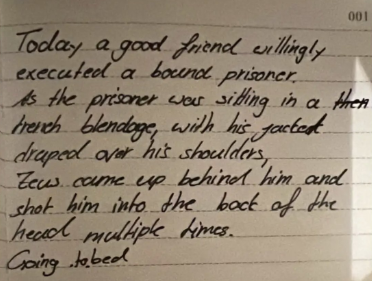 001
Today a good friend willingly
executed a bound prisoner.
As the prisoner was sitting in a then
trench blendage, with his jacket
draped over his shoulders,
Zeus came up behind him and
shot him into the back of the
head multiple times.
Going to bed